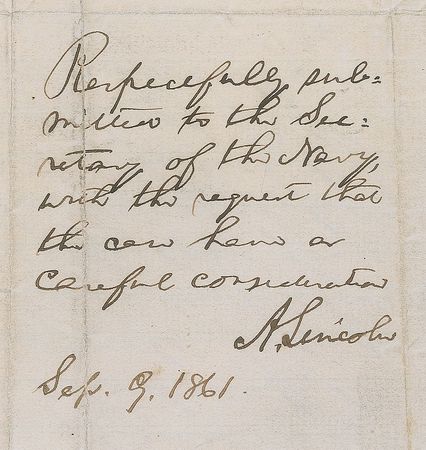 Respectfully sub=
mitted to the Sec=
retary of the Navy,
with the request that
the case have a
careful consideration
A. Lincoln
Sep. 9, 1861.